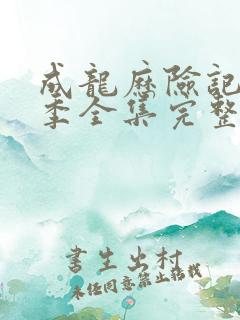 成龍歷險記
季全集完整
書生出村
未经同意禁止搭載